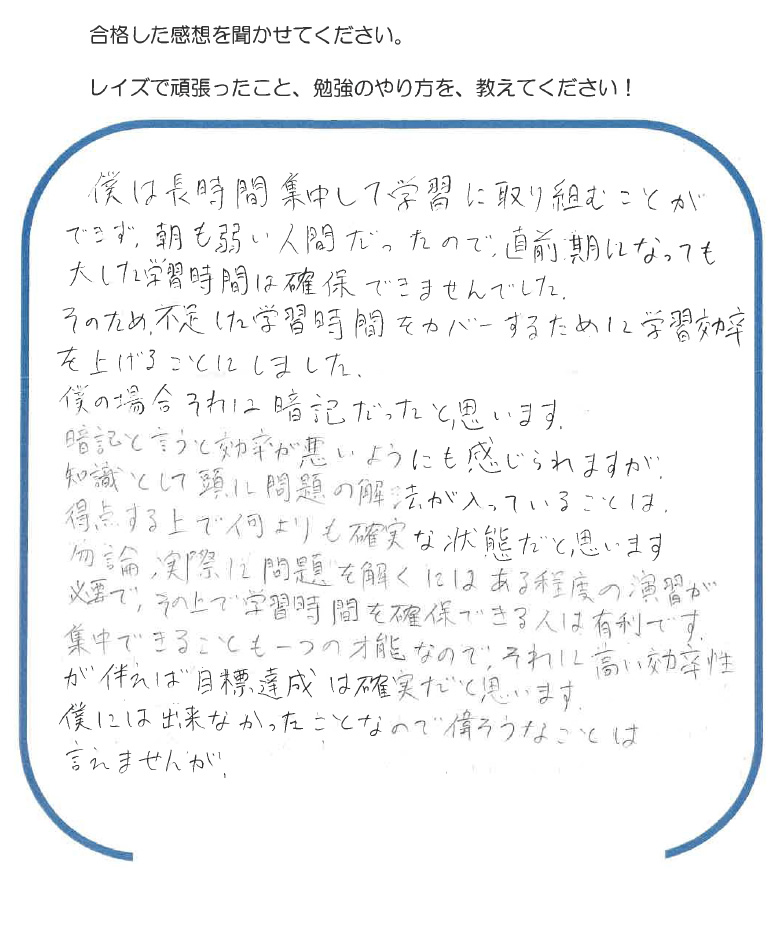 合格した感想を聞かせてください。
レイズで頑張ったこと、勉強のやり方を、教えてください！
僕は長時間集中して学習に取り組むことが
できず、朝も弱い人間だったので、直前期になっても
大した学習時間は確保できませんでした。
そのため、不足した学習時間をカバーするために学習効率
を上げることにしました。
僕の場合それは暗記だったと思います。
暗記と言うと効率が悪いようにも感じられますが、
知識として頭に問題の解法が入っていることは、
得点する上で何よりも確実な状態だと思います
勿論、実際に問題を解くにはある程度の演習が
必要で、その上で学習時間を確保できる人は有利です。
集中できることも一つの才能なので、それに高い効率性
が伴えば目標達成は確実だと思います。
僕には出来なかったことなので偉そうなことは
言えませんが。